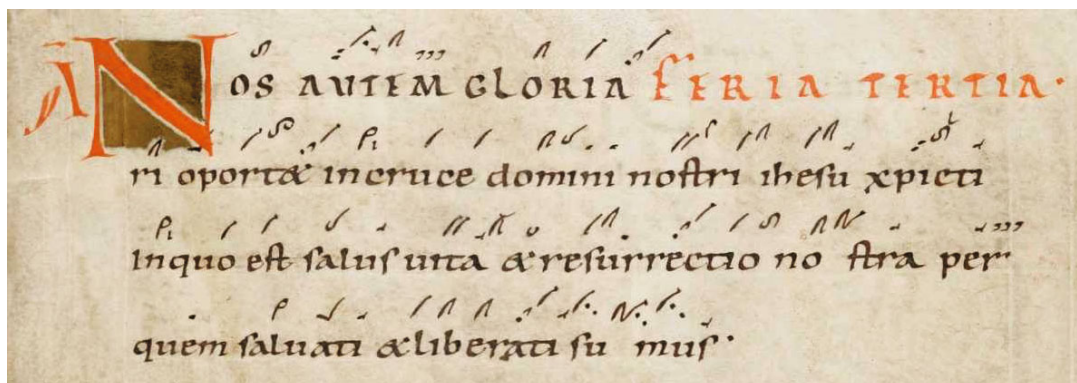 NOS AUTEM GLORIA FERIA TERTIA·
ri oportæ incruce domini nostri ihesu xpicti
Inquo est salus uita & resurrectio no stra per
quem saluati & liberati su mus·